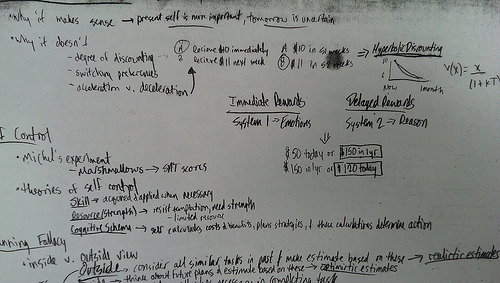 • Why it makes sense → present self is more important, tomorrow is uncertain
• Why it doesn't
- degree of discounting
- switching preferences
- acceleration v. deceleration
A Recieve $10 immediately
B Recieve $11 next week
A $10 in 52 weeks
B $11 in weeks
→ Hyperbolic Discounting
10
Now
1 month
V(x) = x
(1+kT)
Immediate Rewards
Delayed Rewards
System 1 → Emotions
System 2 → Reason
⇓
$50 today or $150 in 1yr
$150 in 1yr or $120 today
Control
• Michel's experiment
- Marshmallows → SAT scores
• theories of self control
Skill → acquired & applied when necessary
Resource (strength) → resist temptation, need strength
- limited resource
Cognitive Schema → self calculates costs & benefits, plans strategies, & these calculations determine action
anning Fallacy
• inside v. outside view
Outside → consider all similar tasks in past & make estimate based on these → realistic estimates
→ think about future plans & estimate based on these → optimistic estimates
necessary in completing task